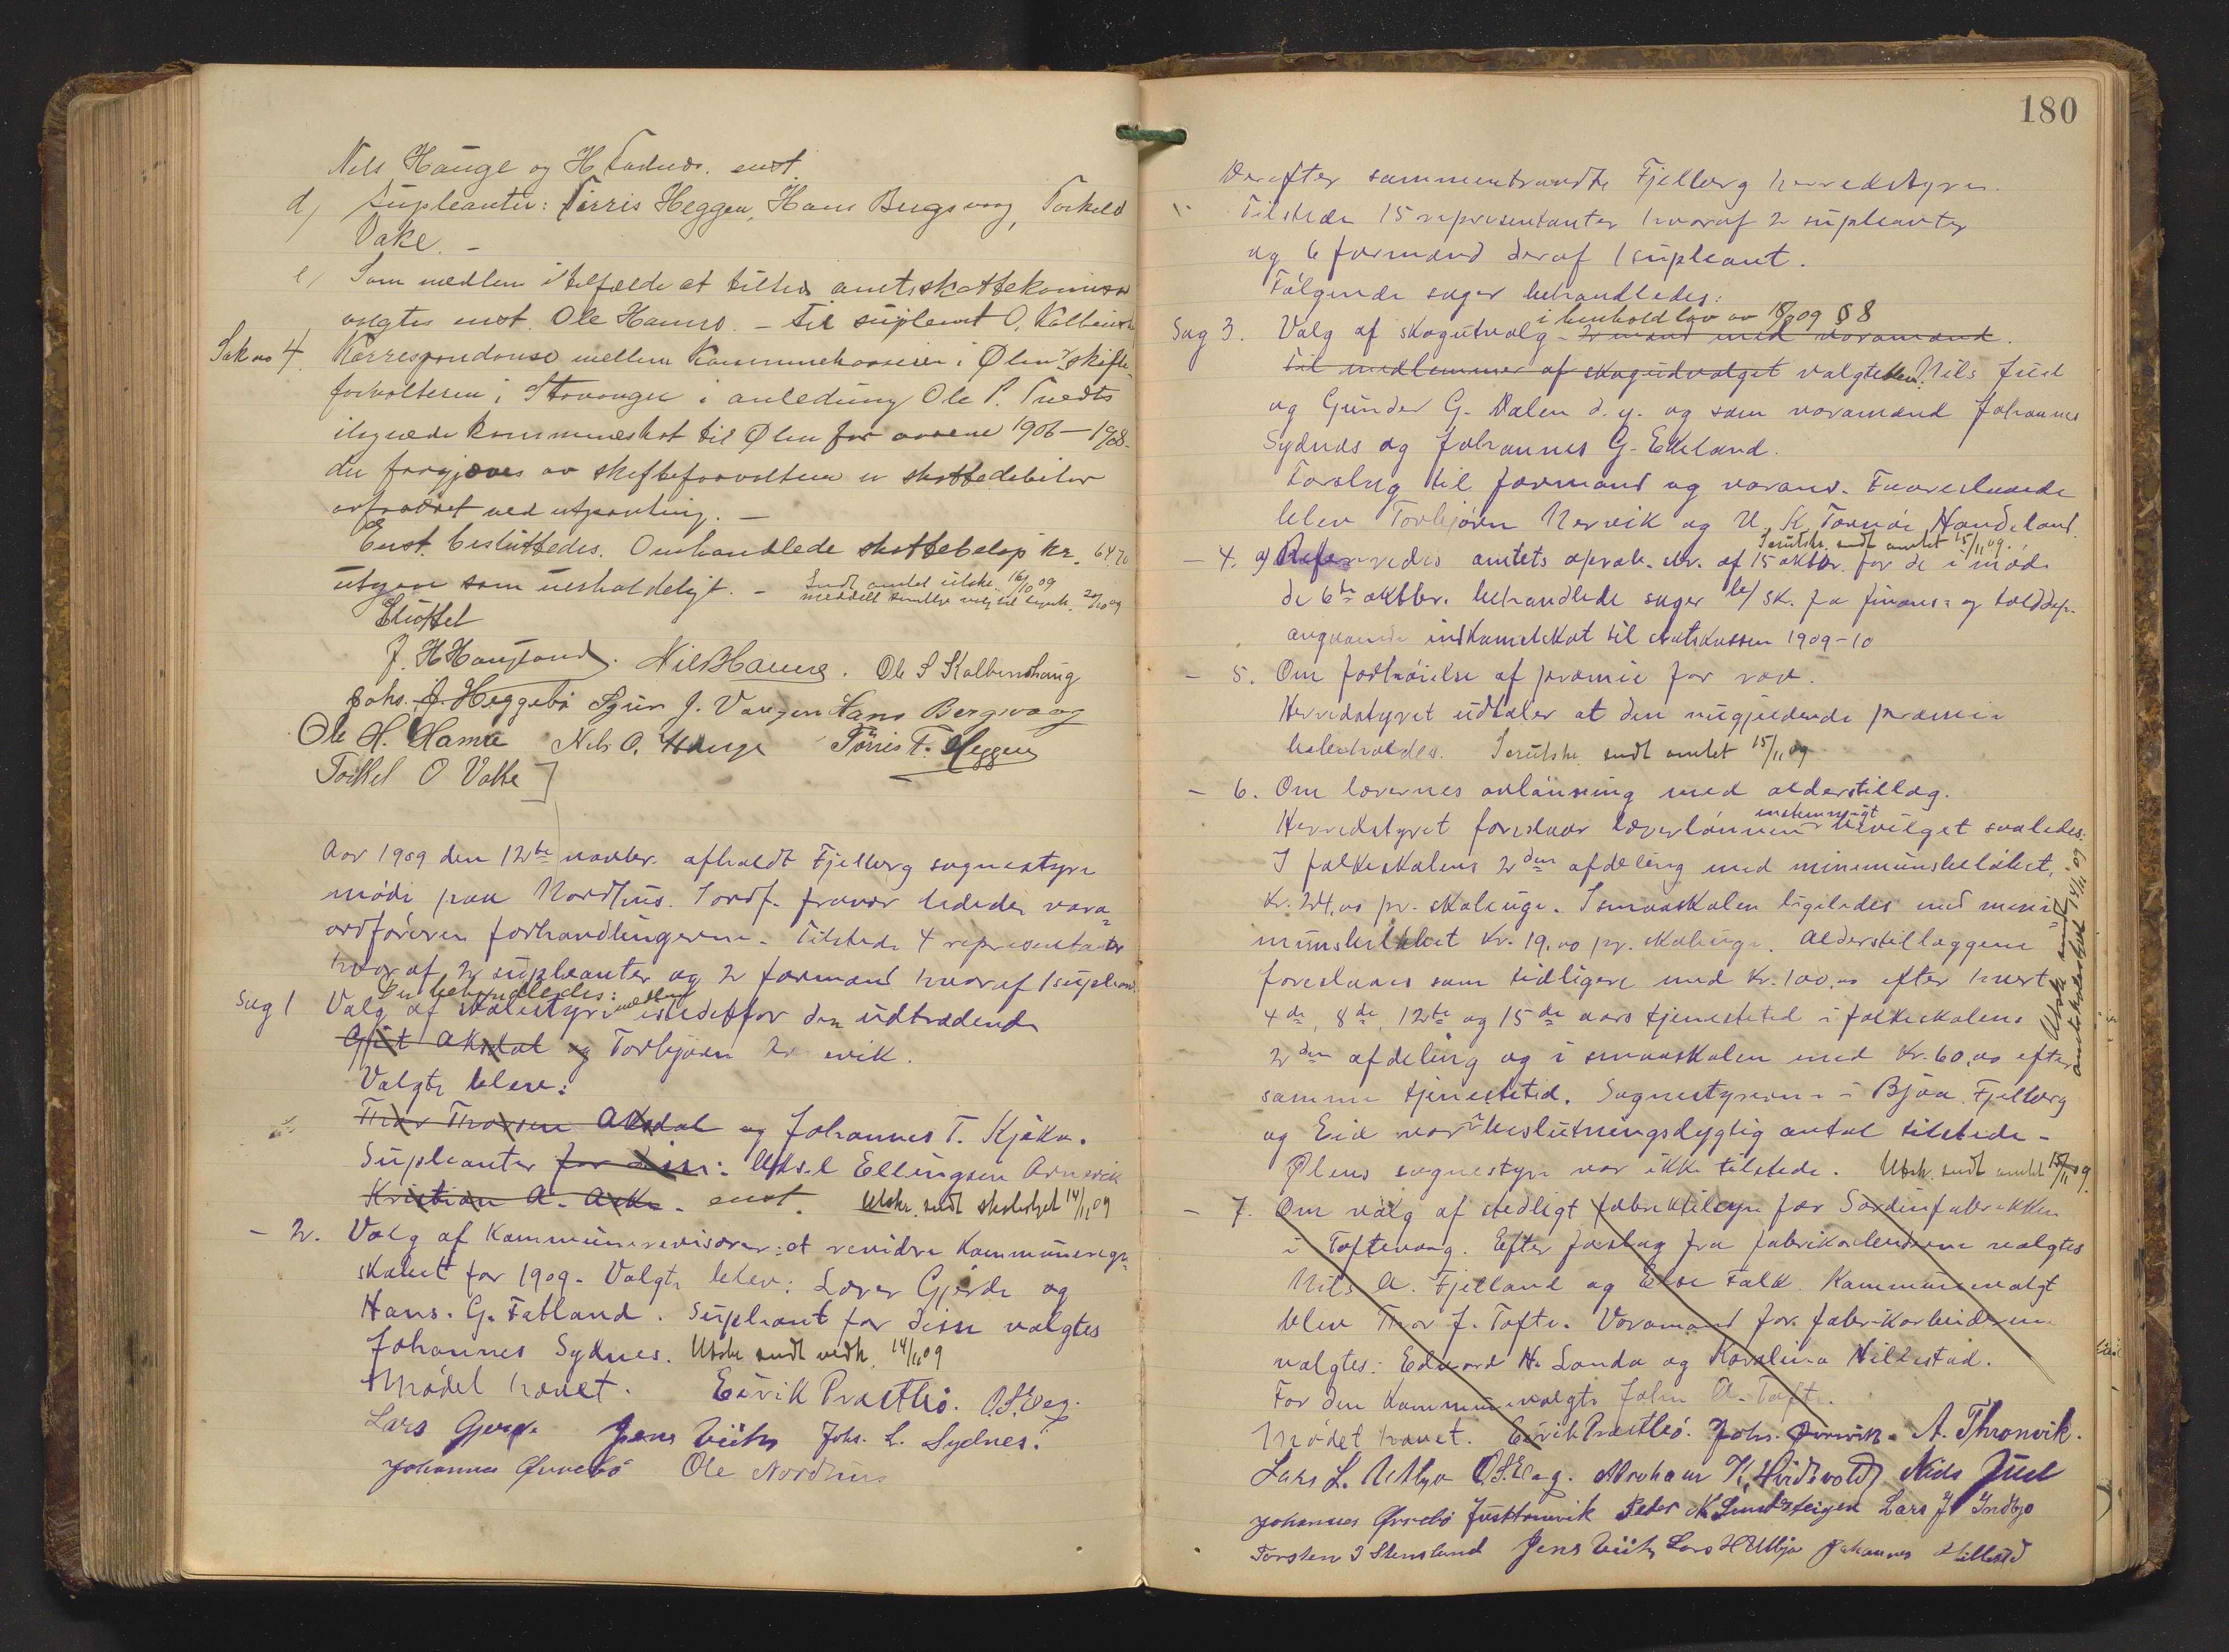 Nils Hauge og H. enst.
d) Supleanter: Tørris Heggen, Hans Bergsvaag, Torkeld
Vake. –
e) Som medlem i tilfælde at tiltræ amtsskattekomisn
valgtes enst. Ole Hamre. – til supleant O. Kalben
Sak no 4. Korrespondanse mellem kommunekasserer i Ølen & skifte-
forvalteren i Stavanger i anledning Ole P. Tvedts
ilignede kommuneskat til Ølen for aarene 1906–1908.
der forgjæves av skifteforvalteren er skattedebitor
avfordret ved utpanting. –
Enst. besluttedes. Omhandlede skattebeløp kr. 64,70
utgaar som uerholdeligt. – Sendt amtet utskr. 16/10 09
meddelt 20/10 09
Sluttet
J. H Haugland. Nils Hamre. Ole S Kalbenshaug
Johs. J. Heggebø Sjur J. Vaagen Hans Bergsvaag
Ole H. Hamre Nils O. Hauge Tørris T. Heggen
Torkel O Vake
Aar 1909 den 12te novbr. afholdt Fjelberg sognestyre
møde paa Nordhus. I ordf. fravær ledede vara=
ordføreren forhandlingerne. Tilstede 4 representanter
hvor af 2 supleanter og 2 formænd hvoraf 1 supleant.
Der behandledes:
Sag 1 Valg af skolestyre medlem istedetfor den udtrædende
Gjert Aksdal og Torbjørn Nervik.
Valgte blev:
Thor Thorsen Aksdal og Johannes T. Kjøkn.
Supleanter for disse: Aksel Ellingsen Arnevik
Kristian A. Aske. enst. Utskr. sendt skolestyret 14/11 09
– 2. Valg af kommunerevisorer at revidere kommuneregn=
skabet for 1909. Valgte blev: Lærer Gjerde og
Hans. G. Fatland. Supleant for disse valgtes
Johannes Sydnes. Utskr sendt vedk. 14/11 09
Mødet hævet. Eirik Prestbø. O.S. Eeg.
Lars Gjerde Jens Vik Johs. L. Sydnes.
Johannes Ørrebø Ole Nordhus
180
Derefter sammentraadte Fjelberg herredstyre.
Tilstede 15 representanter hvoraf 2 supleanter
og 6 formænd deraf 1 supleant.
Følgende sager behandledes:
i henhold lov av 18/9 09 § 8
Sag 3. Valg af skogutvalg – 2 mænd med varamænd.
Til medlemmer af skogudvalget valgtes blev Nils Juel
og Gunder G. Dalen d. y. og som varamænd Johannes
Sydnes og Johannes G. Ekeland.
Forslag til formand og varam. Foreslaaede
blev Torbjørn Nervik og N. K. Tornøe Handeland.
Særutskr. sendt amtet 15/11 09.
– 4. a) Refereredes amtets aprob. skr. af 15 oktbr. for de i møde
de 6te oktbr. behandlede sager b/ sk. fra finans- og tolddep.
angaaende indkomstskat til statskassen 1909–10
– 5. Om forhøielse af præmie for ræv.
Herredstyret udtaler at den nugjældende præmie
bibeholdes. Særutskr. sendt amtet 15/11 09
– 6. Om lærernes avlønning med alderstillæg.
Herredstyret foreslaar lærerlønnen enstemmigt bevilget saaledes:
I folkeskolens 2den afdeling med minimumsbeløbet,
Kr. 24,00 pr. skoleuge. I smaaskolen ligeledes med mini=
mumsbeløbet kr. 19,00 pr. skoleuge. Alderstillæggene
foreslaaes som tidligere med kr. 100,00 efter hvert
4de, 8de, 12te og 15de aars tjenestetid i folkeskolens
2den afdeling og i smaaskolen med kr. 60,00 efter
samme tjenestetid. Sognestyrerne i Bjoa, Fjelberg
og Eid var i beslutningsdygtig antal tilstede –
Ølens sognestyre var ikke tilstede. Utskr. sendt amtet 15/11 09.
Utskr. sendt amtskolestyret 14/11 09
– 7. Om valg af stedligt fabriktilsyn for Sardinfabrikken
i Toftevaag. Efter forslag fra fabrikarbeiderne valgtes
Nils A. Fjelland og Else Falk. Kommunevalgt
blev Thor J. Tofte. Varamænd for fabrikarbeiderne
valgtes: Edvard H. Landa og Karolina Hillestad.
For den kommunevalgte John A. Tofte.
Mødet hævet. Eirik Prestbø. Johs. A. Thronvik.
Lars L. Utbjo O.S. Eeg. Abraham K. Hvidevold Nils Juel
Johannes Ørrebø Peder Lars J Indbjo
Torsten I Stensland Jens Vik Lars H Utbjo Johannes Hillestad